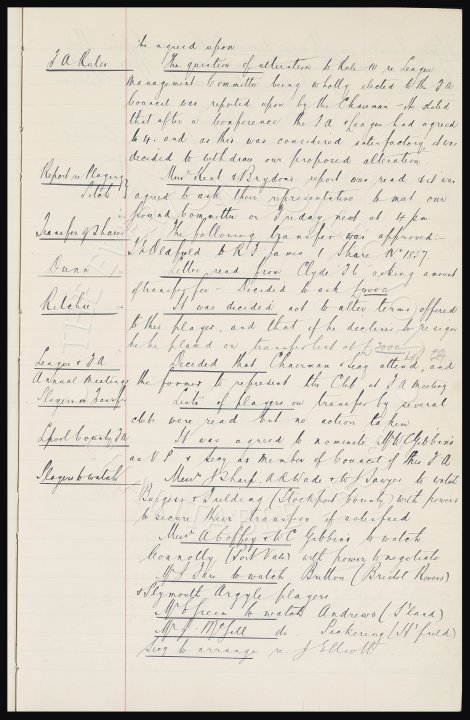 be agreed upon
F A Rules The question of alteration to Rule 10 re League
Management Committee being wholly elected to the F A
Council was reported upon by the Chairman - He stated
that after a Conference the F A & League had agreed
to 4. and as this was considered satisfactory it was
decided to withdraw our proposed alteration
Report re Playing Pitch Messrs Kent & Brydons report was read & it was
agreed to ask their representative to meet our
Ground Committee on Friday next at 4 pm
Transfer of Shares The following transfer was approved:-
Th Oldfield to R J James 1 Share No 1857.
Dunn Letter read from Clyde F C asking amount
of transfer fee - Decided to ask
Ritchie It was decided not to alter terms offered
to this player, and that if he declines to resign
he be placed on transfer list at £2000
League & F A Decided that Chairman & Secy attend, and
Annual Meetings the former to represent the Club at F A Meeting
Players on Transfer Lists of players on transfer by several
clubs were read but no action taken
Lpool County F A It was agreed to nominate Mr W C Gibbins
as V P & Secy as member of Council of this F A
Players to watch Messrs J Sharp, A R Wade & W J Sawyer to watch
Burgess & Fielding (Stockport County) with powers
to secure their transfers if satisfied
Messrs A Coffey & W C Gibbins to watch
Connolly (Port Vale) with power to negotiate
to watch Britton (Bristol Rovers)
& Plymouth Argyle players
Mr E Green to watch Andrews (S'land)
Mr J. McGill do. Pickering (H'field)
Secy to arrange re J Elliott